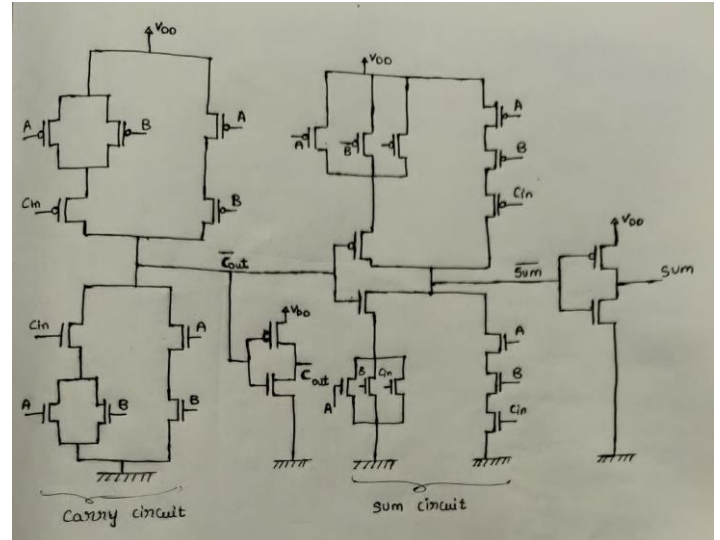 VDD
A
B
A
Cin
B
VDD
A
B
A
B
Cin
C̅out
S̅u̅m̅
VDD
Sum
Cin
A
A
B
B
VDD
Cout
A
B
Cin
A
B
Cin
Carry circuit
Sum circuit